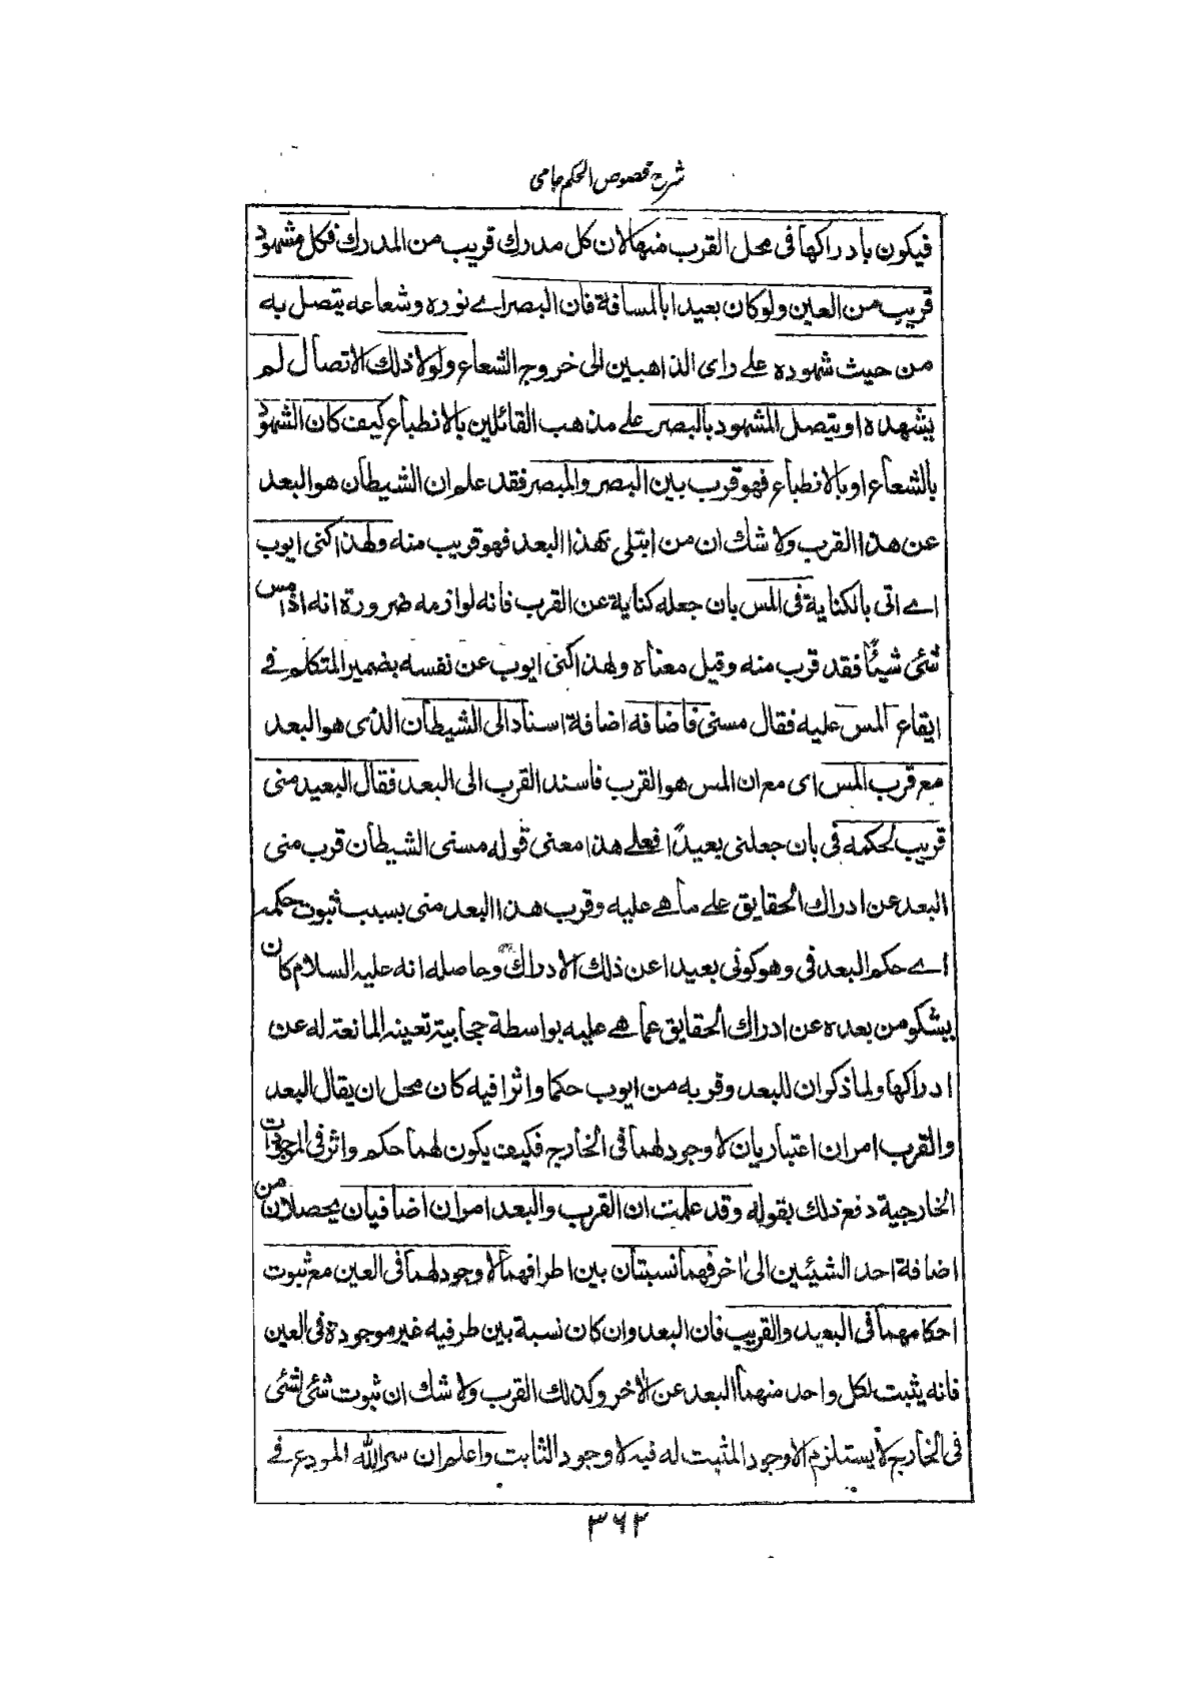 شرح فصوص الحكم جامى
فيكون بادراكها فى محل القرب منها لان كل مدرك قريب من المدرك فكل مشهود
قريب من العين ولو كان بعيدا بالمسافة فان البصر اے نوره وشعاعه يتصل به
من حيث شهوده علے راى الذاهبين الى خروج الشعاع ولولا ذلك الاتصال لم
يشهده او يتصل المشهود بالبصر علے مذهب القائلين بالانطباع كيف كان الشهود
بالشعاع او بالانطباع فهو قرب بين البصر والمبصر فقد علم ان الشيطان هو البعد
عن هذا القرب ولا شك ان من ابتلى بهذا البعد فهو قريب منه ولهذا كنى ايوب
اے اتى بالكناية فى المس بان جعله كناية عن القرب فانه لوازمه ضرورة انه اذا مس
شئ شيئا فقد قرب منه وقيل معناه ولهذا كنى ايوب عن نفسه بضمير المتكلم فے
ايقاع المس عليه فقال مسنى فاضافه اضافة اسناد الى الشيطان الذى هو البعد
مع قرب المس اى مع ان المس هو القرب فاسند القرب الى البعد فقال البعيد منى
قريب لحكمه فى بان جعلنى بعيدًا فعلے هذا معنى قوله مسنى الشيطان قرب منى
البعد عن ادراك الحقايق علے ما هے عليه وقرب هذا البعد منى بسبب ثبوت حكمه
اے حكم البعد فى وهو كونى بعيدا عن ذلك الادراك وحاصله انه عليه السلام كان
يشكو من بعده عن ادراك الحقايق عما هے عليه بواسطة حجابية تعينه المانعة له عن
ادراكها ولما ذكر ان للبعد وقربه من ايوب حكما واثرا فيه كان محل ان يقال البعد
والقرب امران اعتباريان لا وجود لهما فى الخارج فكيف يكون لهما حكم واثر فى الموجودات
الخارجية دفع ذلك بقوله وقد علمت ان القرب والبعد امران اضافيان يحصلان من
اضافة احد الشيئين الى اخر فهما نسبتان بين اطرافهما لا وجود لهما فى العين مع ثبوت
احكامهما فى البعيد والقريب فان البعد وان كان نسبة بين طرفيه غير موجودة فى العين
فانه يثبت لكل واحد منهما البعد عن الاخر وكذلك القرب ولا شك ان ثبوت شئ لشئ
فى الخارج لا يستلزم الا وجود المثبت له فيه لا وجود الثابت واعلم ان سر الله المودع فے
٣٦٢